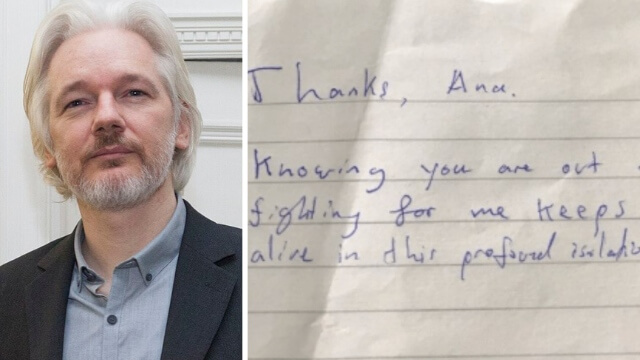 Thanks, Ana.
Knowing you are out
fighting for me keeps
alive in this profound isolation